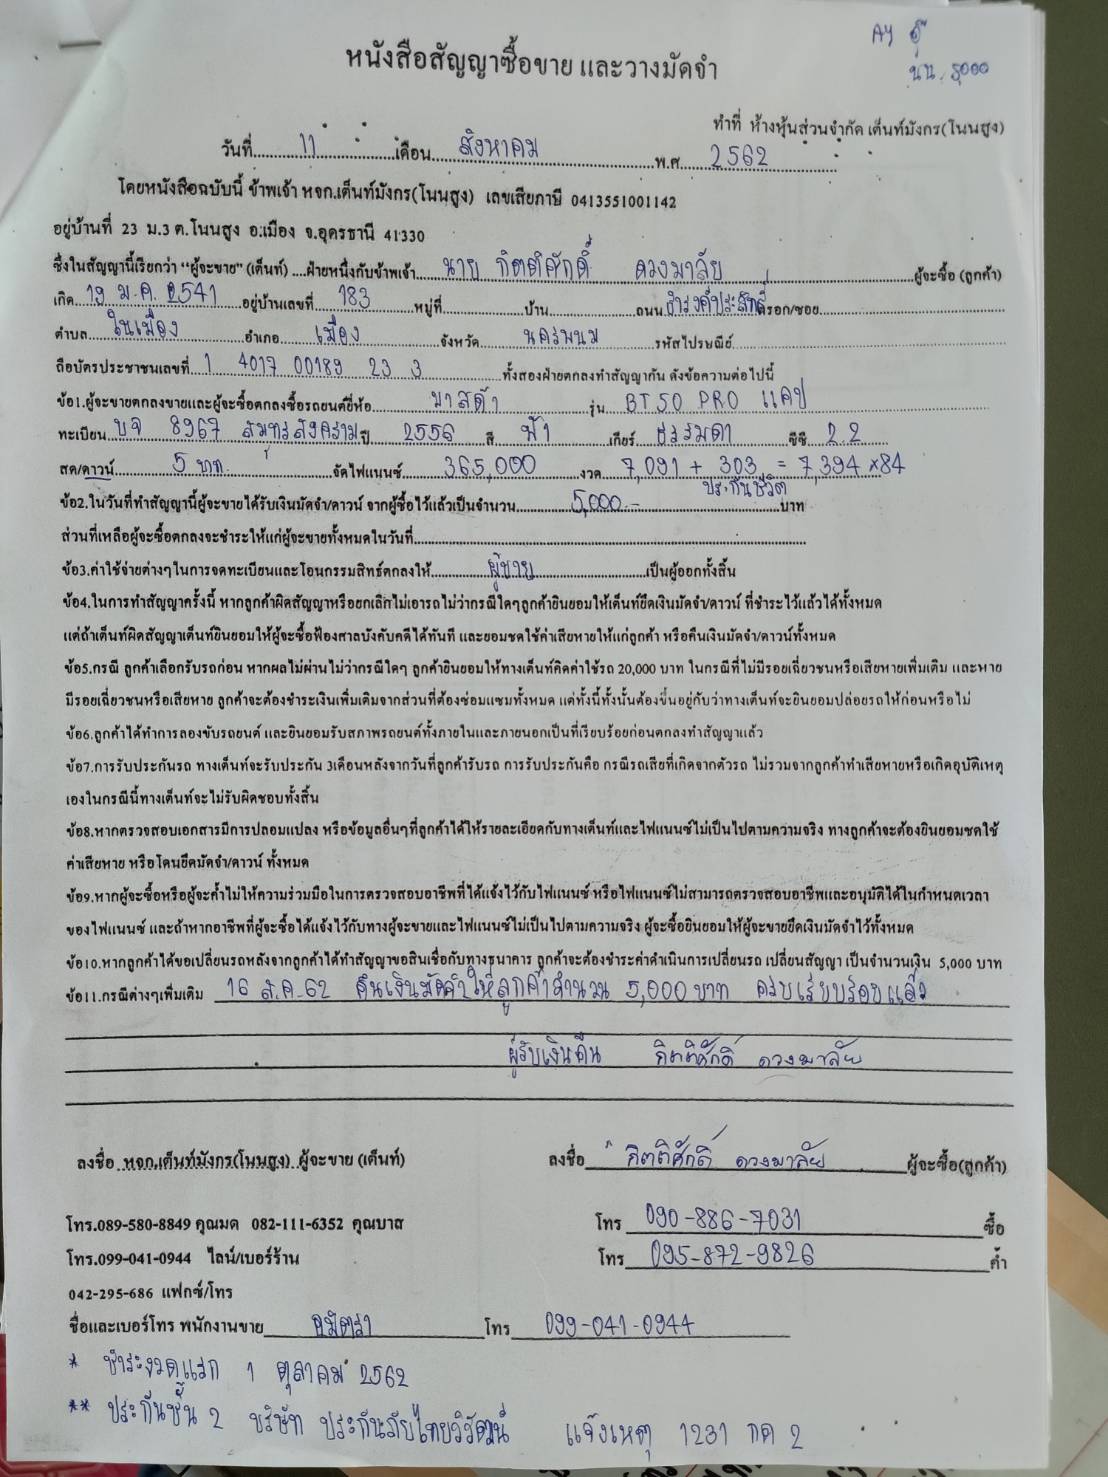 AY
นน. 5,000
หนังสือสัญญาซื้อขาย และวางมัดจำ
ทำที่ ห้างหุ้นส่วนจำกัด เต็นท์มังกร(โนนสูง)
วันที่ 11 เดือน สิงหาคม พ.ศ 2562
โดยหนังสือฉบับนี้ ข้าพเจ้า หจก.เต็นท์มังกร(โนนสูง) เลขเสียภาษี 0413551001142
อยู่บ้านที่ 23 ม.3 ต.โนนสูง อ.เมือง จ.อุดรธานี 41330
ซึ่งในสัญญานี้เรียกว่า "ผู้จะขาย" (เต็นท์) ....ฝ่ายหนึ่งกับข้าพเจ้า นาย กิตติศักดิ์ ดวงมาลัย ผู้จะซื้อ (ลูกค้า)
เกิด 19 ม.ค. 2541 อยู่บ้านเลขที่ 183 หมู่ที่ บ้าน ถนน ธำรงค์ประสิทธิ์ ตรอก/ซอย
ตำบล ในเมือง อำเภอ เมือง จังหวัด นครพนม รหัสไปรษณีย์
ถือบัตรประชาชนเลขที่ 1 4017 00189 23 3 ทั้งสองฝ่ายตกลงทำสัญญากัน ดังข้อความต่อไปนี้
ข้อ1.ผู้จะขายตกลงขายและผู้จะซื้อตกลงซื้อรถยนต์ยี่ห้อ มาสด้า รุ่น BT50 PRO แคป
ทะเบียน บจ 8967 สมุทรสงคราม ปี 2556 สี ฟ้า เกียร์ ธรรมดา ซีซี 2.2
สด/ดาวน์ 5 บาท จัดไฟแนนซ์ 365,000 งวด 7,091 + 303 = 7,394 x84
ประกันชีวิต
ข้อ2.ในวันที่ทำสัญญานี้ผู้จะขายได้รับเงินมัดจำ/ดาวน์ จากผู้ซื้อไว้แล้วเป็นจำนวน 5,000.- บาท
ส่วนที่เหลือผู้จะซื้อตกลงจะชำระให้แก่ผู้จะขายทั้งหมดในวันที่
ข้อ3.ค่าใช้จ่ายต่างๆในการจดทะเบียนและโอนกรรมสิทธ์ตกลงให้ ผู้ขาย เป็นผู้ออกทั้งสิ้น
ข้อ4.ในการทำสัญญาครั้งนี้ หากลูกค้าผิดสัญญาหรือยกเลิกไม่เอารถไม่ว่ากรณีใดๆลูกค้ายินยอมให้เต็นท์ยึดเงินมัดจำ/ดาวน์ ที่ชำระไว้แล้วได้ทั้งหมด
แต่ถ้าเต็นท์ผิดสัญญาเต็นท์ยินยอมให้ผู้จะซื้อฟ้องศาลบังคับคดีได้ทันที และยอมชดใช้ค่าเสียหายให้แก่ลูกค้า หรือคืนเงินมัดจำ/ดาวน์ทั้งหมด
ข้อ5.กรณี ลูกค้าเลือกรับรถก่อน หากผลไม่ผ่านไม่ว่ากรณีใดๆ ลูกค้ายินยอมให้ทางเต็นท์คิดค่าใช้รถ 20,000 บาท ในกรณีที่ไม่มีรอยเฉี่ยวชนหรือเสียหายเพิ่มเติม และหาย
มีรอยเฉี่ยวชนหรือเสียหาย ลูกค้าจะต้องชำระเงินเพิ่มเติมจากส่วนที่ต้องซ่อมแซมทั้งหมด แต่ทั้งนี้ทั้งนั้นต้องขึ้นอยู่กับว่าทางเต็นท์จะยินยอมปล่อยรถให้ก่อนหรือไม่
ข้อ6.ลูกค้าได้ทำการลองขับรถยนต์ และยินยอมรับสภาพรถยนต์ทั้งภายในและภายนอกเป็นที่เรียบร้อยก่อนตกลงทำสัญญาแล้ว
ข้อ7.การรับประกันรถ ทางเต็นท์จะรับประกัน 3เดือนหลังจากวันที่ลูกค้ารับรถ การรับประกันคือ กรณีรถเสียที่เกิดจากตัวรถ ไม่รวมจากลูกค้าทำเสียหายหรือเกิดอุบัติเหตุ
เองในกรณีนี้ทางเต็นท์จะไม่รับผิดชอบทั้งสิ้น
ข้อ8.หากตรวจสอบเอกสารมีการปลอมแปลง หรือข้อมูลอื่นๆที่ลูกค้าได้ให้รายละเอียดกับทางเต็นท์และไฟแนนซ์ไม่เป็นไปตามความจริง ทางลูกค้าจะต้องยินยอมชดใช้
ค่าเสียหาย หรือโดนยึดมัดจำ/ดาวน์ ทั้งหมด
ข้อ9.หากผู้จะซื้อหรือผู้จะค้ำไม่ให้ความร่วมมือในการตรวจสอบอาชีพที่ได้แจ้งไว้กับไฟแนนซ์ หรือไฟแนนซ์ไม่สามารถตรวจสอบอาชีพและอนุมัติได้ในกำหนดเวลา
ของไฟแนนซ์ และถ้าหากอาชีพที่ผู้จะซื้อได้แจ้งไว้กับทางผู้จะขายและไฟแนนซ์ไม่เป็นไปตามความจริง ผู้จะซื้อยินยอมให้ผู้จะขายยึดเงินมัดจำไว้ทั้งหมด
ข้อ10.หากลูกค้าได้ขอเปลี่ยนรถหลังจากลูกค้าได้ทำสัญญาขอสินเชื่อกับทางธนาคาร ลูกค้าจะต้องชำระค่าดำเนินการเปลี่ยนรถ เปลี่ยนสัญญา เป็นจำนวนเงิน 5,000 บาท
ข้อ11.กรณีต่างๆเพิ่มเติม 16 ส.ค.62 คืนเงินมัดจำให้ลูกค้าจำนวน 5,000 บาท ครบเรียบร้อยแล้ว
ผู้รับเงินคืน กิตติศักดิ์ ดวงมาลัย
ลงชื่อ หจก.เต็นท์มังกร(โนนสูง) ผู้จะขาย (เต็นท์) ลงชื่อ กิตติศักดิ์ ดวงมาลัย ผู้จะซื้อ(ลูกค้า)
โทร.089-580-8849 คุณมด 082-111-6352 คุณบาส โทร 090-886-7031 ซื้อ
โทร.099-041-0944 ไลน์/เบอร์ร้าน โทร 095-872-9826 ค้ำ
042-295-686 แฟกซ์/โทร
ชื่อและเบอร์โทร พนักงานขาย โทร 099-041-0944
* ชำระงวดแรก 1 ตุลาคม 2562
** ประกันชั้น 2 บริษัท ประกันภัยไทยวิวัฒน์ แจ้งเหตุ 1231 กด 2